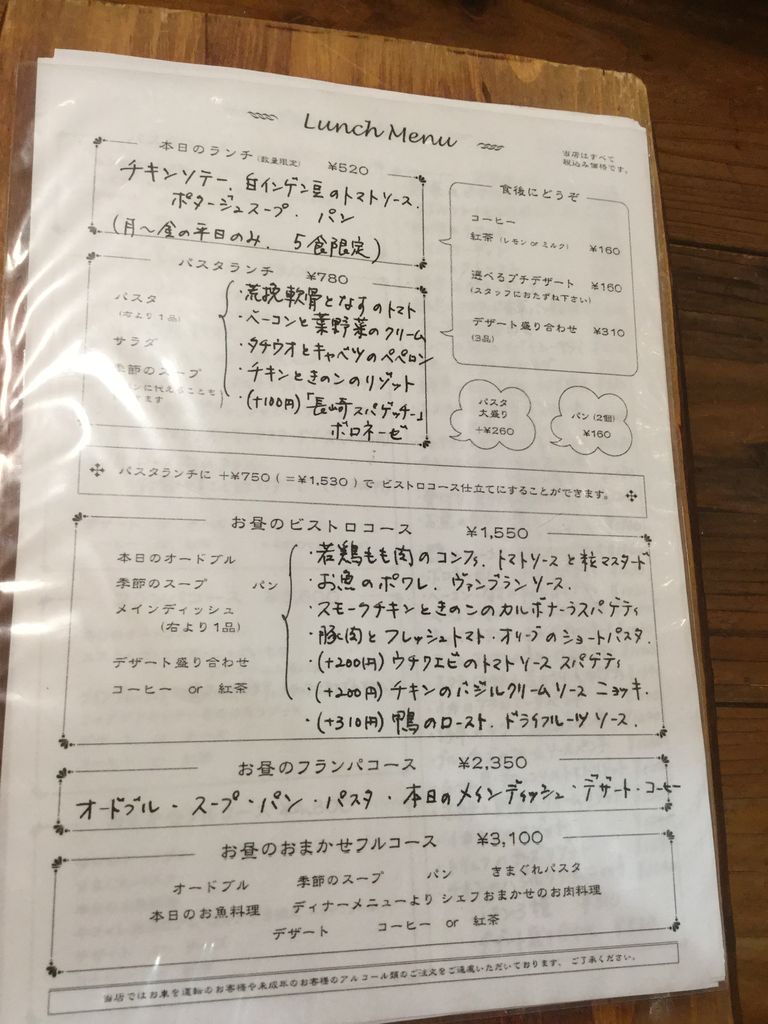 Lunch Menu
当店はすべて
税込み価格です。
本日のランチ(数量限定) ¥520
チキンソテー、白インゲン豆のトマトソース、
ポタージュスープ、パン
(月〜金の平日のみ、5食限定)
パスタランチ ¥780
パスタ
(右より1品)
サラダ
季節のスープ
に代えることも
ます
・荒挽軟骨となすのトマト
・ベーコンと葉野菜のクリーム
・タチウオとキャベツのペペロン
・チキンときのこのリゾット
・(+100円)「長崎スパゲッチー」
ボロネーゼ
食後にどうぞ
コーヒー
紅茶(レモン or ミルク) ¥160
選べるプチデザート ¥160
(スタッフにおたずね下さい)
デザート盛り合わせ ¥310
(3品)
パスタ
大盛り
+¥260
パン(2個)
¥160
パスタランチに +¥750(=¥1,530)で ビストロコース仕立てにすることができます。
お昼のビストロコース ¥1,550
本日のオードブル
季節のスープ パン
メインディッシュ
(右より1品)
デザート盛り合わせ
コーヒー or 紅茶
・若鶏もも肉のコンフィ、トマトソースと粒マスタード
・お魚のポワレ、ヴァンブランソース、
・スモークチキンときのこのカルボナーラスパゲティ
・豚肉とフレッシュトマト・オリーブのショートパスタ、
・(+200円)ウチワエビのトマトソース スパゲティ
・(+200円)チキンのバジルクリームソース ニョッキ、
・(+310円)鴨のロースト、ドライフルーツソース、
お昼のフランパコース ¥2,350
オードブル・スープ・パン・パスタ・本日のメインディッシュ・デザート・コーヒー
お昼のおまかせフルコース ¥3,100
オードブル 季節のスープ パン きまぐれパスタ
本日のお魚料理 ディナーメニューより シェフおまかせのお肉料理
デザート コーヒー or 紅茶
当店ではお車を運転のお客様や未成年のお客様のアルコール類のご注文をご遠慮いただいております、ご了承ください。